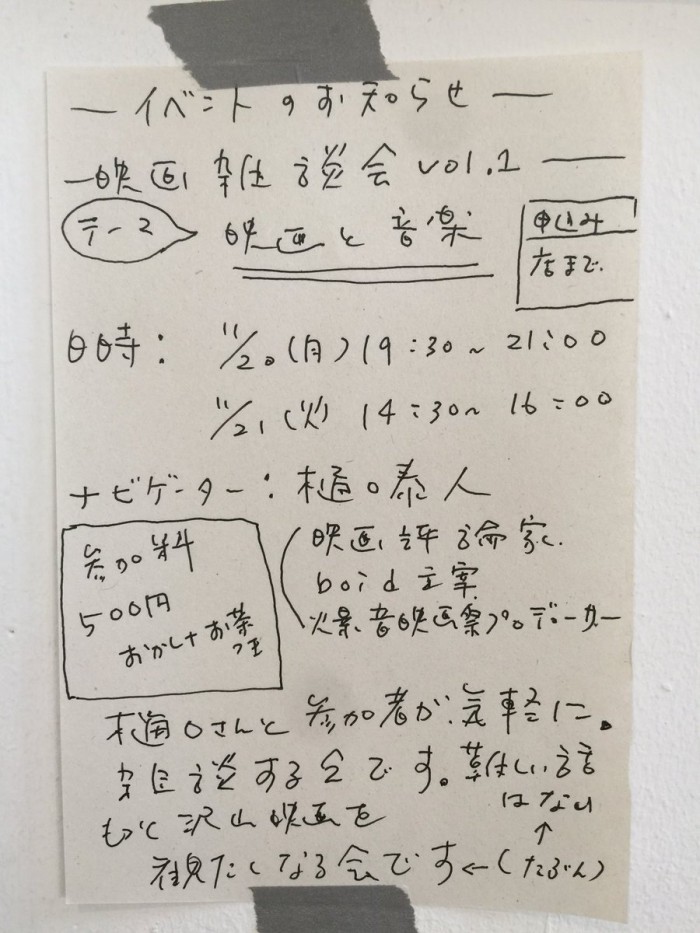 ― イベントのお知らせ ―
― 映画雑談会 vol.1 ―
テーマ
映画と音楽
申込み
店まで.
日時: 11/20 (月) 19:30~ 21:00
11/21 (火) 14:30~ 16:00
ナビゲーター: 樋口泰人
映画評論家
boid主宰
爆音映画祭プロデューサー
参加料
500円
おかし+お茶
つき
樋口さんと参加者が気軽に
雑談する会です。難しい話
はない
↑
(たぶん)
もっと沢山映画を
観たくなる会です←